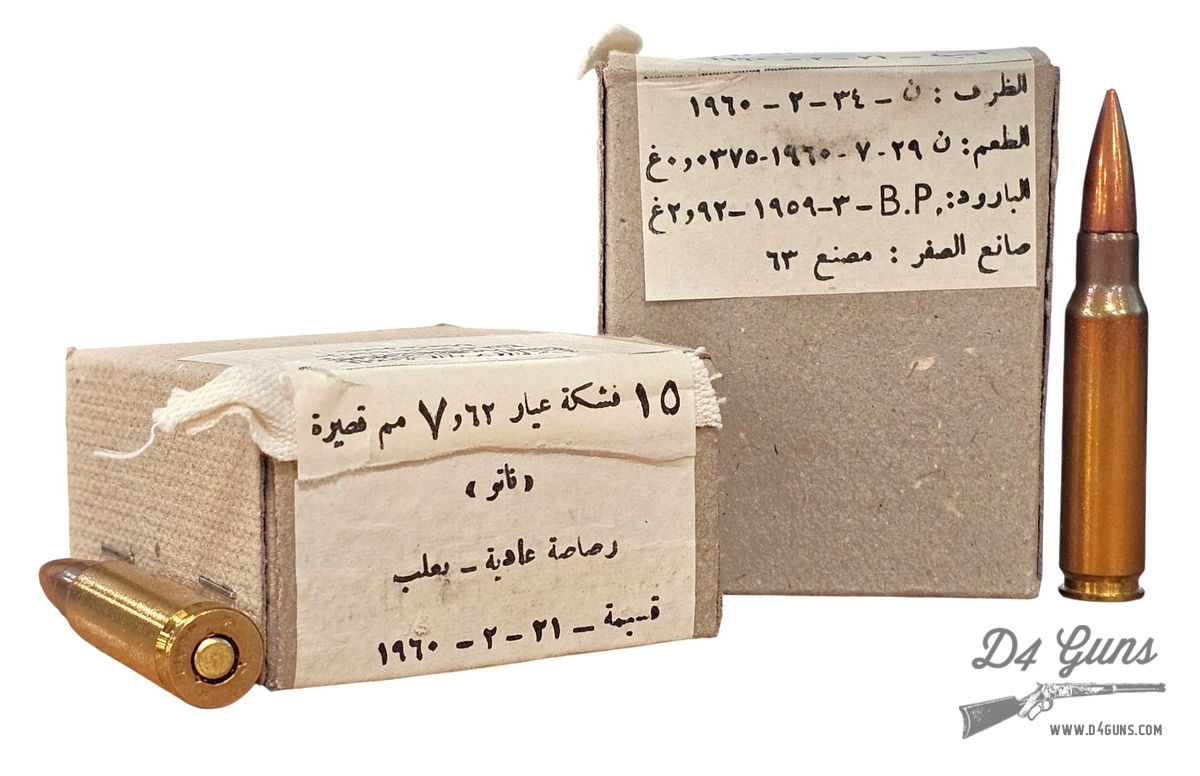 ١٥ فشكة عيار ٧٫٦٢ مم قصيرة
«ناتو»
رصاصة عادية – بعلب
قسيمة – ٢١ – ٢ – ١٩٦٠
الظرف : ن – ٣٤ – ٢ – ١٩٦٠
الطعم : ن ٢٩ - ٧ - ١٩٦٠ - ٠٫٠٣٧٥غ
البارود : B.P. – ٣ – ١٩٥٩ – ٢٫٩٢غ
صانع الصفر : مصنع ٦٣
D4 Guns
WWW.D4GUNS.COM